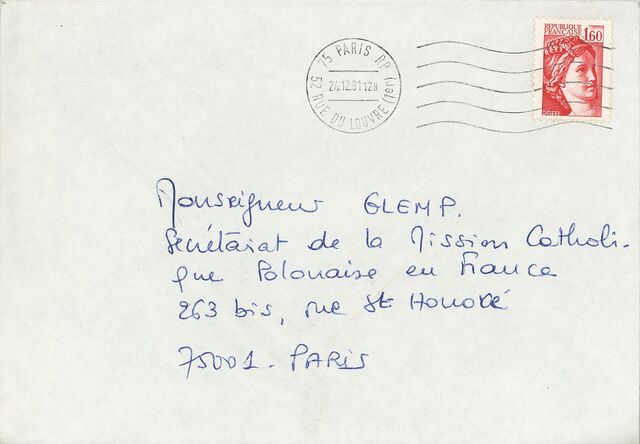 REPUBLIQUE
FRANÇAISE
1,60
POSTES
75 PARIS RP
24.12.81 12H
52 RUE DU LOUVRE (1er)
Monseigneur GLEMP.
Secrétariat de la Mission Catholi-
que Polonaise en France
263 bis, rue St Honoré
75001. PARIS